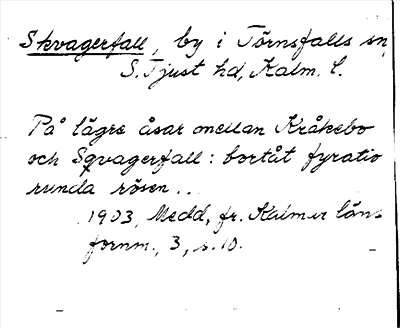 Skvagerfall, by i Törnsfalls sn,
S. Tjust hd, Kalm. l.
På lägre åsar mellan Kråkebo
och Sqvagerfall: bortåt fyratio
runda rösen..
1903, Medd. fr. Kalmar läns
fornm., 3, s. 10.